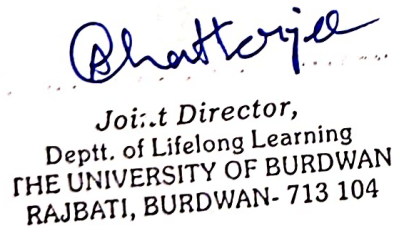 Bhatterjee
Joint Director,
Deptt. of Lifelong Learning
THE UNIVERSITY OF BURDWAN
RAJBATI, BURDWAN- 713 104